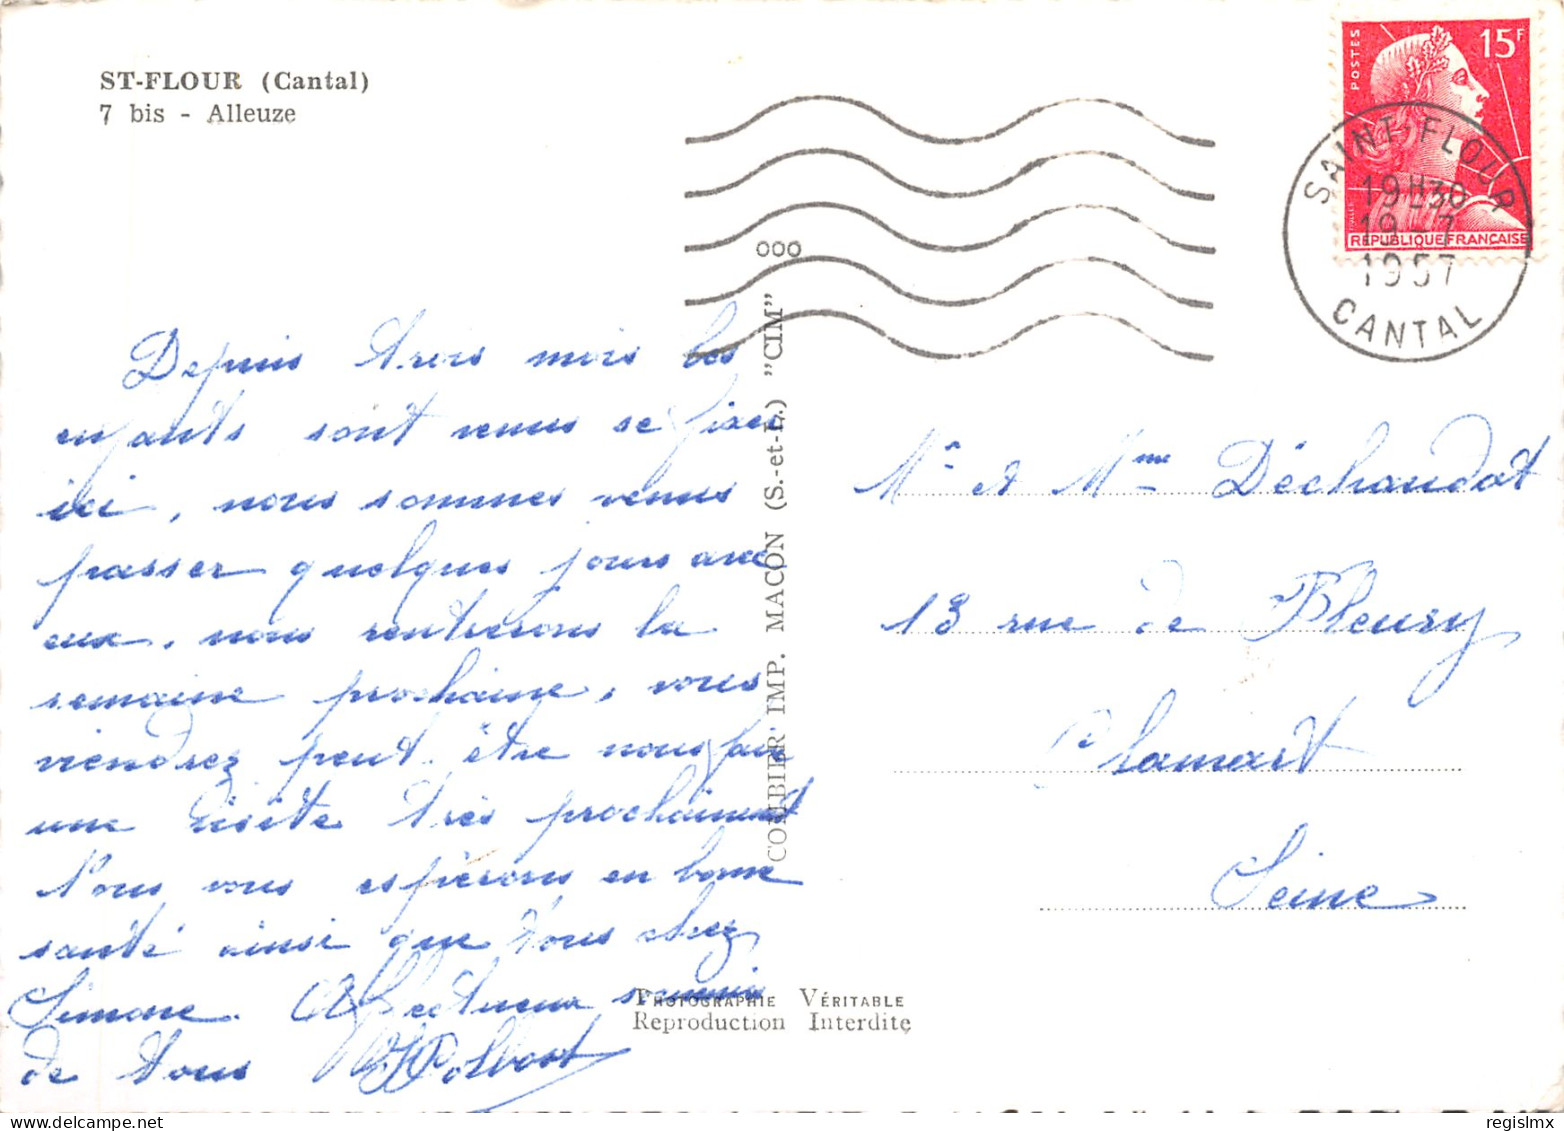 ST-FLOUR (Cantal)
7 bis - Alleuze
POSTES
15F
REPUBLIQUE FRANÇAISE
SAINT-FLOUR
19H30
19-7
1957
CANTAL
000
COMBIER IMP. MACON (S.-et-L.) "CIM"
Depuis trois mois les
enfants sont venus se fixer
ici, nous sommes venus
passer quelques jours avec
eux, nous rentrerons la
semaine prochaine, vous
viendrez peut être nous faire
une visite très prochainement
Nous vous espérons en bonne
santé ainsi que tous chez
Simone. Affectueux souvenir
de tous
Mr et Mme Déchaudat
13 rue de Fleury
Clamart
Seine
PHOTOGRAPHIE VÉRITABLE
Reproduction Interdite
regislmx